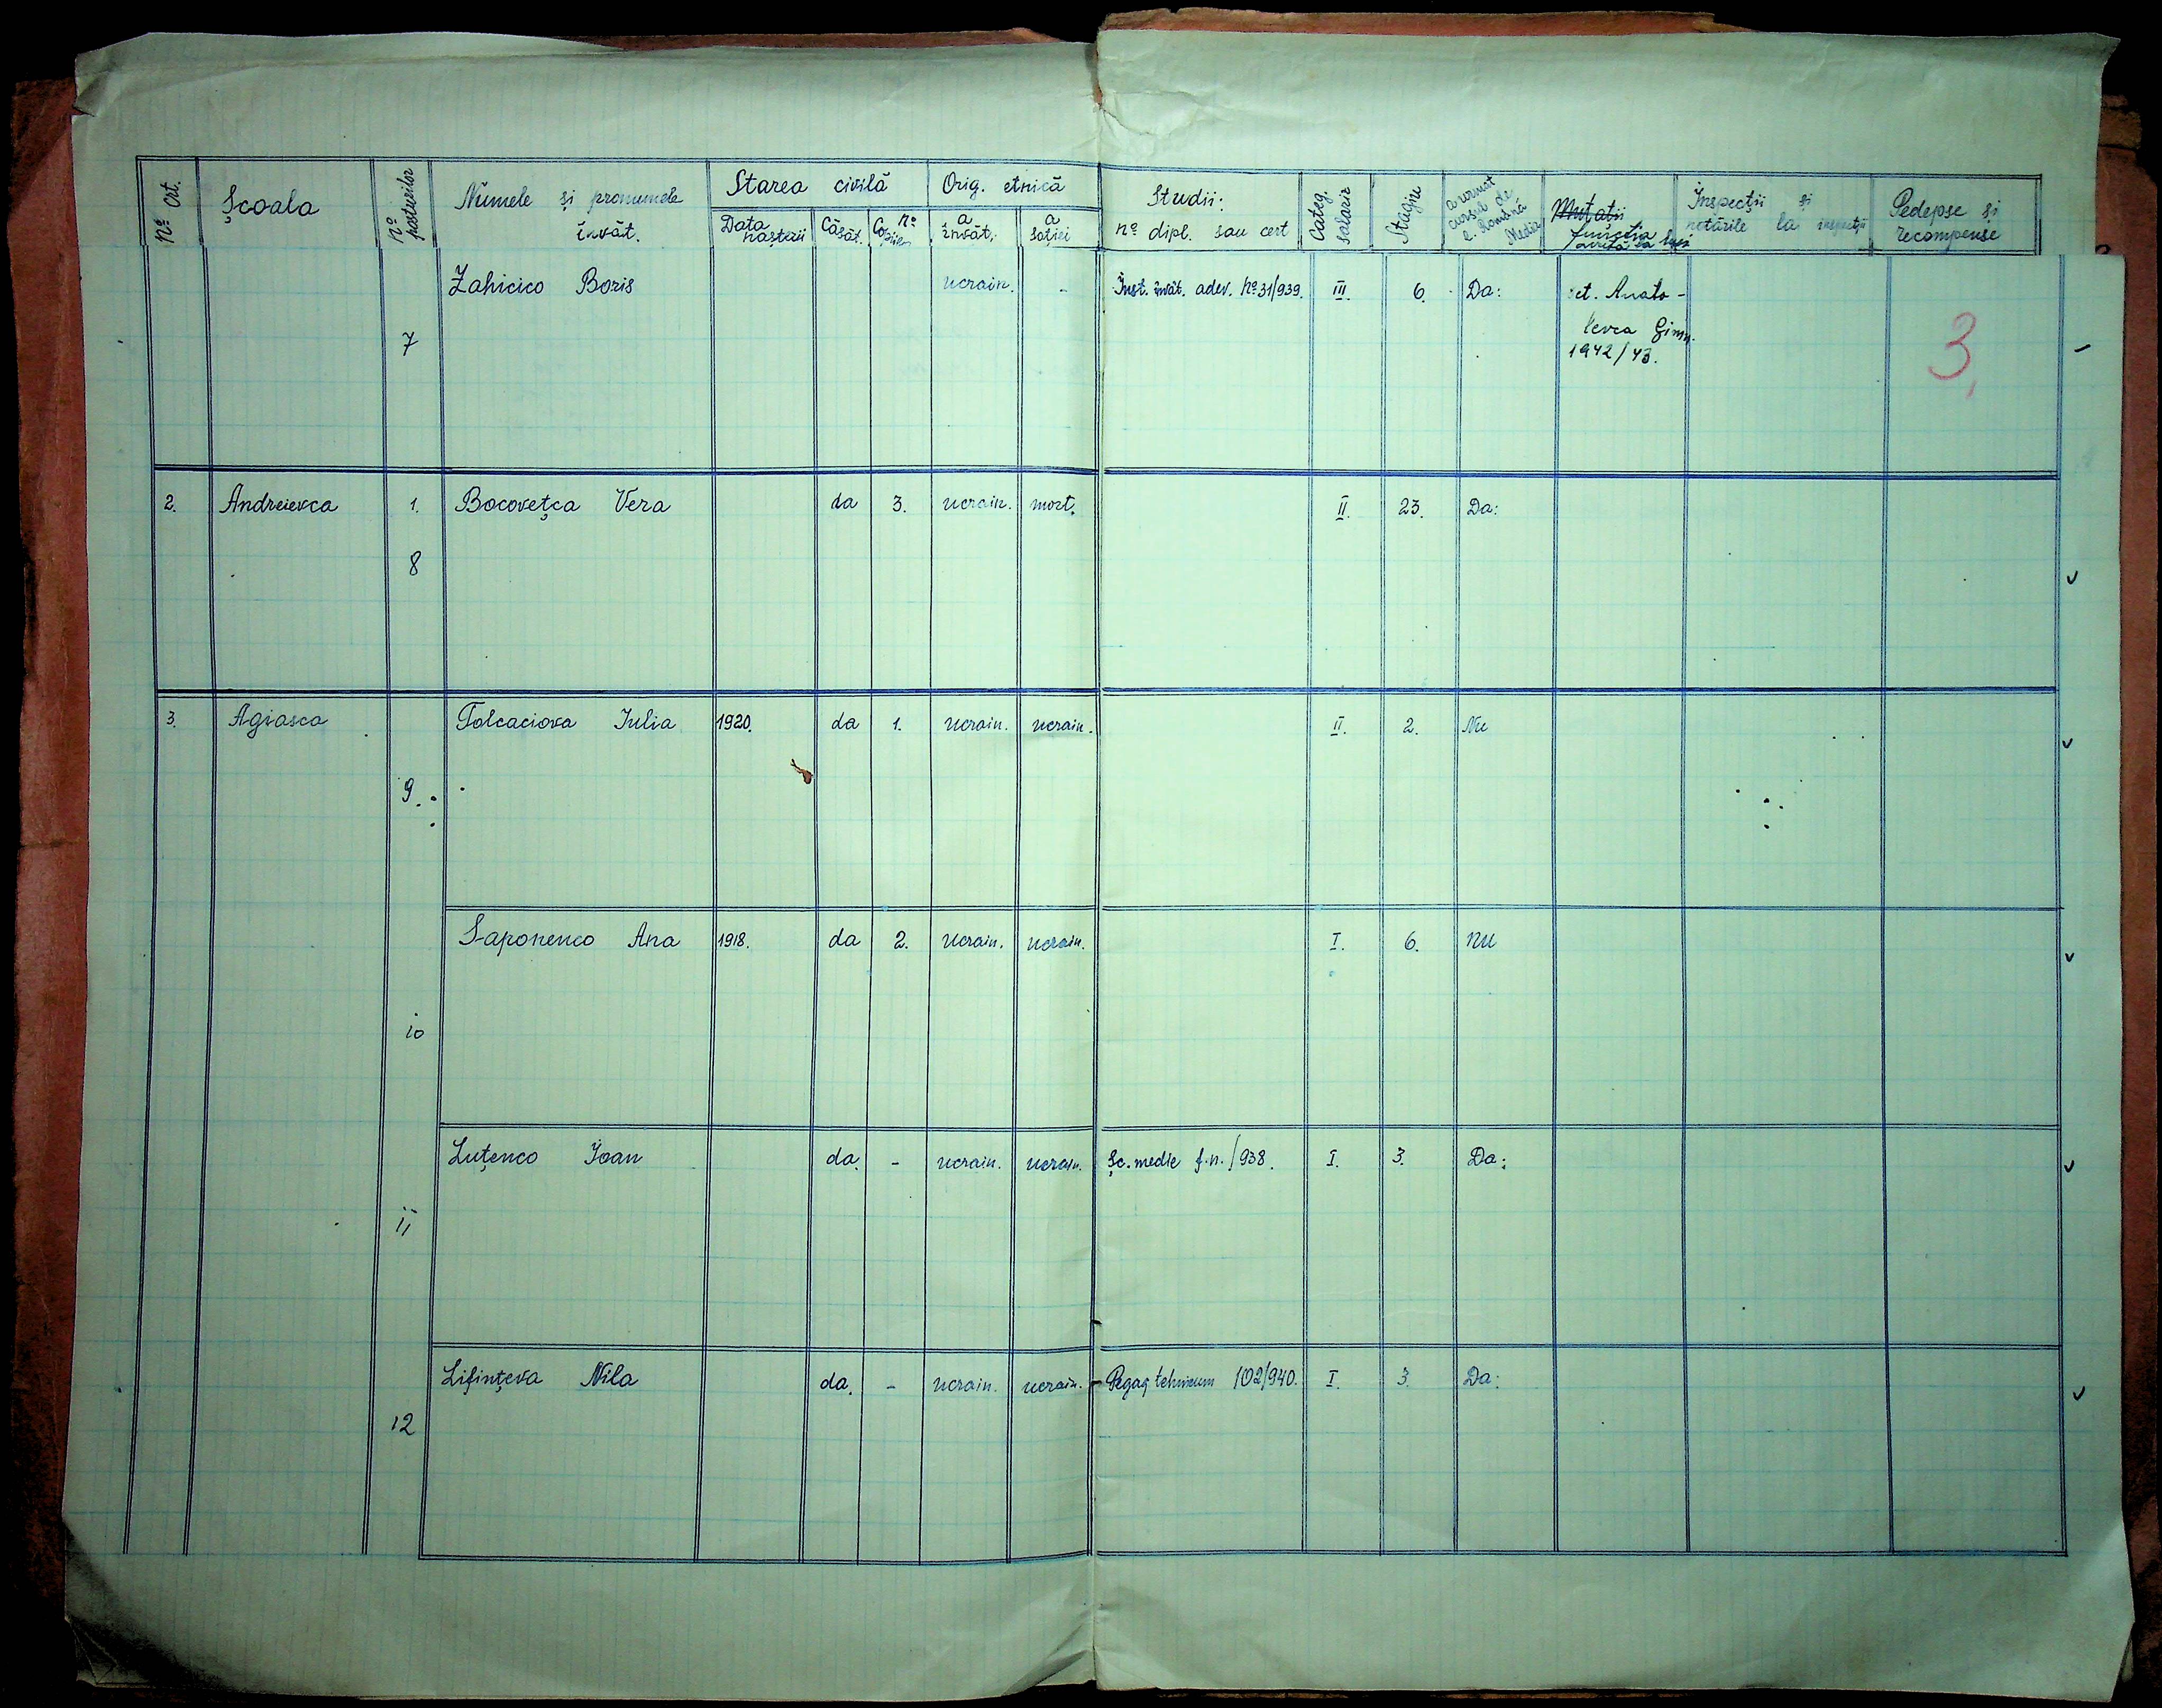 No Crt. Școala No posturilor Numele și pronumele învăț. Starea civilă Data nașterii Căsăt. No Copiilor Orig. etnică a învăț. a soției Studii: no dipl. sau cert Categ. salariz Stagiu a urmat cursul de l. Română Media Mutații funcția Inspecții și notările la inspecții Pedepse și recompense
7 Zahicico Boris ucrain. - Inst. învăț. adev. No 31/939. III. 6. Da: Anato-
levca Gimn.
1942/43.
3
2. Andreievca 1. Bocovețca Vera da 3. ucrain. mort. II. 23. Da:
8
3. Agiasca Tolcaciova Iulia 1920. da 1. ucrain. ucrain. II. 2. Nu
9.
Saponenco Ana 1918. da 2. ucrain. ucrain. I. 6. nu
10
Luțenco Ioan da. - ucrain. ucrain. Șc. medie f.n./938. I. 3. Da:
11
Lifințeva Nila da. - ucrain. ucrain. - Pegag tehnicum 102/940. I. 3. Da:
12